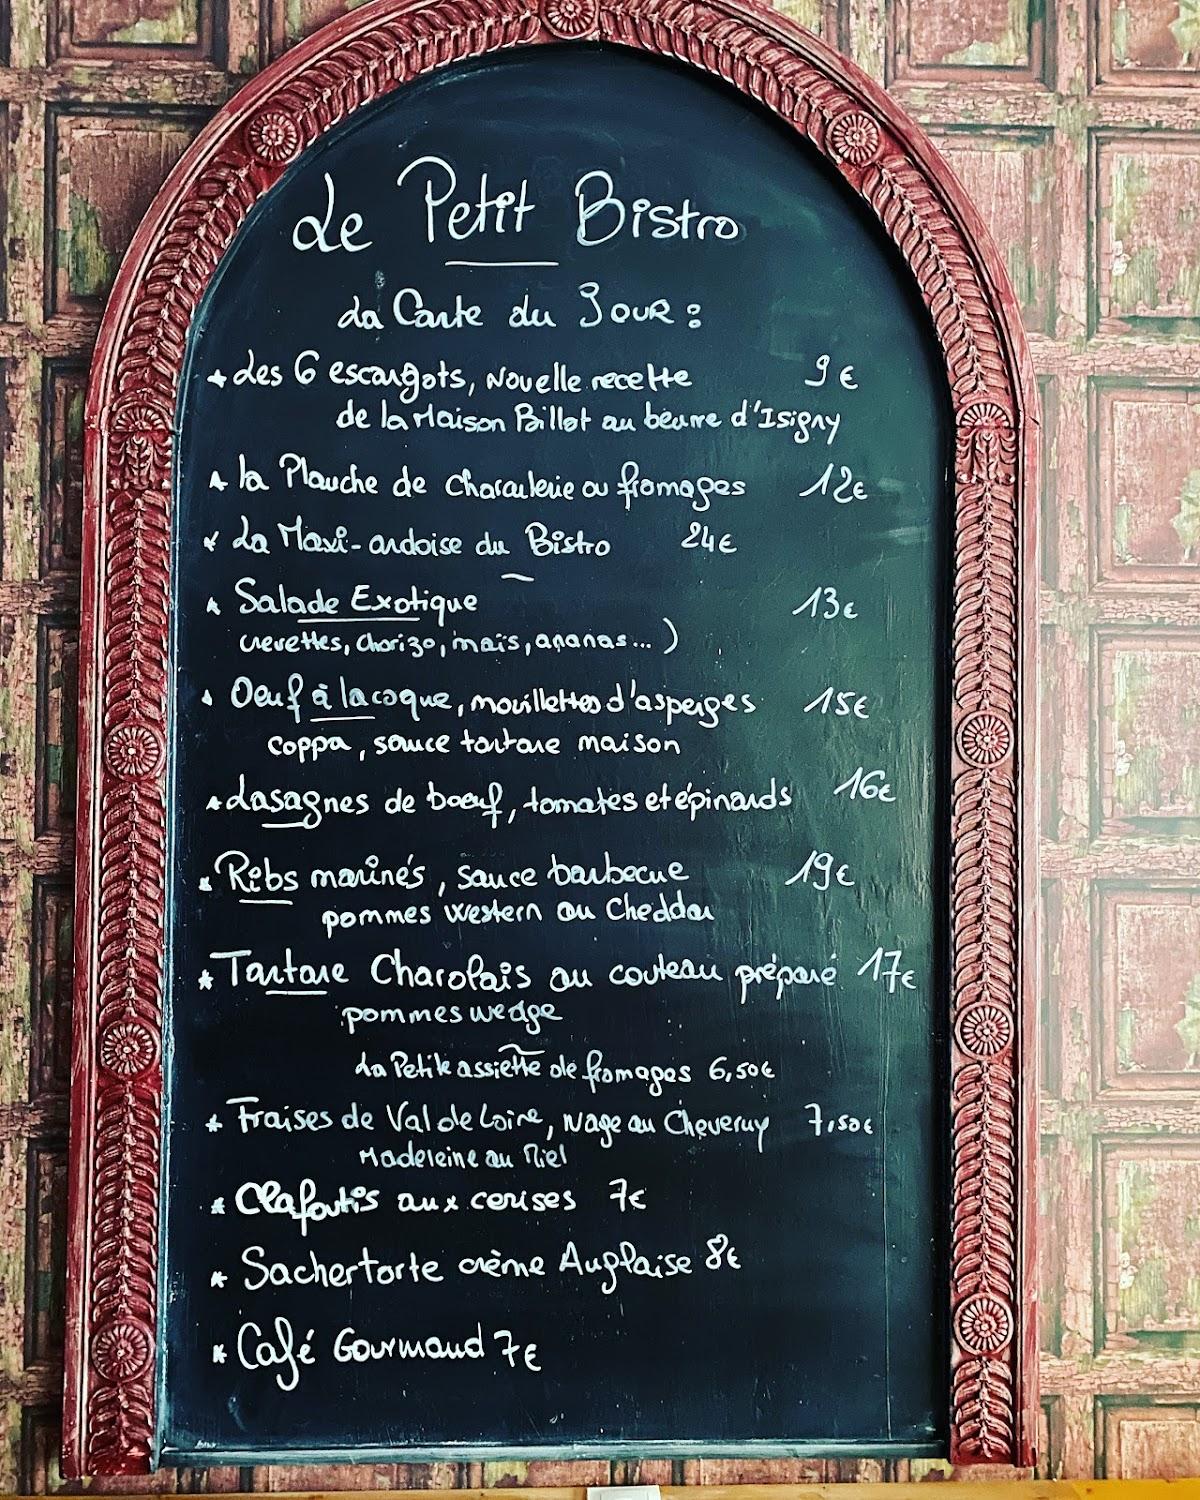 Le Petit Bistro
La Carte du Jour :
* Les 6 escargots, Nouvelle recette 9€
de la Maison Billot au beurre d'Isigny
* la Planche de Charcuterie ou fromages 12€
* La Maxi-ardoise du Bistro 24€
* Salade Exotique 13€
crevettes, chorizo, maïs, ananas... )
* Oeuf à la coque, mouillettes d'asperges 15€
coppa, sauce tartare maison
* Lasagnes de boeuf, tomates et épinards 16€
* Ribs marinés, sauce barbecue 19€
pommes western au Cheddar
* Tartare Charolais au couteau préparé 17€
pommes wedge
La Petite assiette de fromages 6,50€
* Fraises de Val de Loire, Nage au Cheverny 7,50€
Madeleine au Miel
* Clafoutis aux cerises 7€
* Sachertorte crème Anglaise 8€
* Café Gourmand 7€